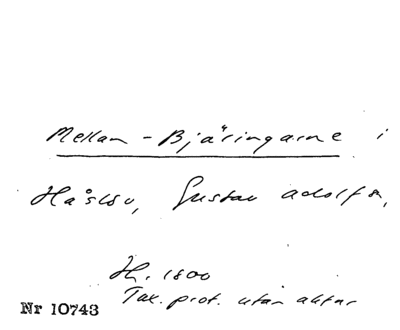 Mellan-Bjäringarne i
Håslöv, Gustav Adolfs,
H. 1800
Tax. prot. utan aktar
Nr 10743